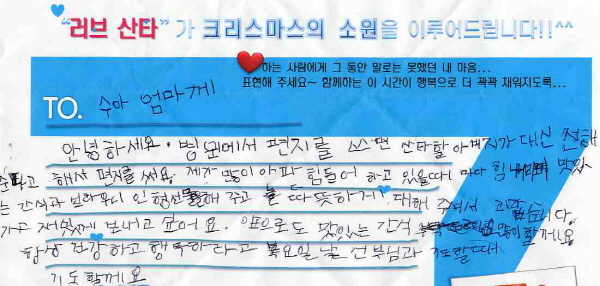 "러브 산타"가 크리스마스의 소원을 이루어드립니다!!^^
하는 사람에게 그 동안 말로는 못했던 내 마음...
표현해 주세요~ 함께하는 이 시간이 행복으로 더 꽉꽉 채워지도록...
TO. 수아 엄마께
안녕하세요. 병원에서 편지를 쓰면 산타할아버지가 대신 전해
준다고 해서 편지를 써요. 제가 많이 아파 힘들어 하고 있을때 마다 힘 맛있
는 간식과 인형선물해 주고 늘 따뜻하게 대해 주셔서
가고 재밌게 보내고 싶어요. 앞으로도 맛있는 간식 많이 할께요
항상 건강하고 행복하라고 목요일날 신부님과 기도할때
기도할께요